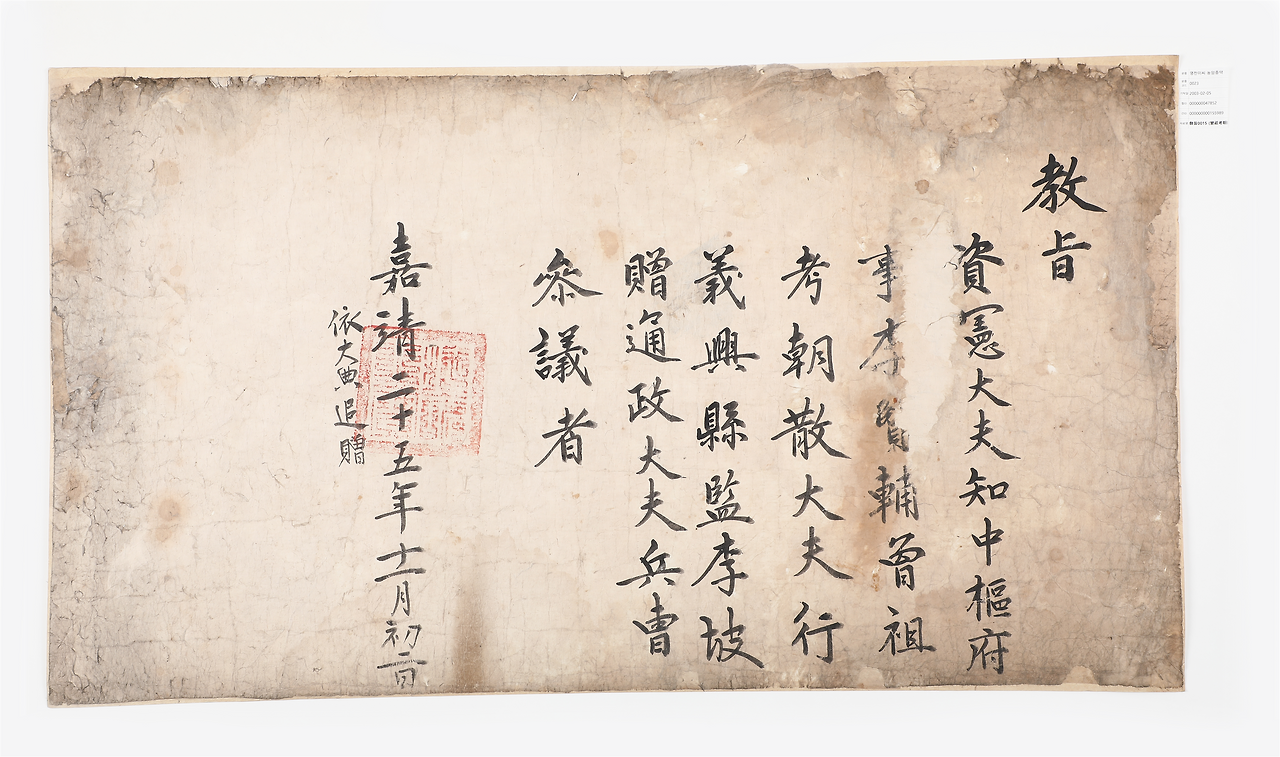 教旨
資憲大夫知中樞府
事李賢輔曾祖
考朝散大夫行
義興縣監李坡
贈通政大夫兵曺
叅議者
嘉靖二十五年十二月初二日
依大典追贈